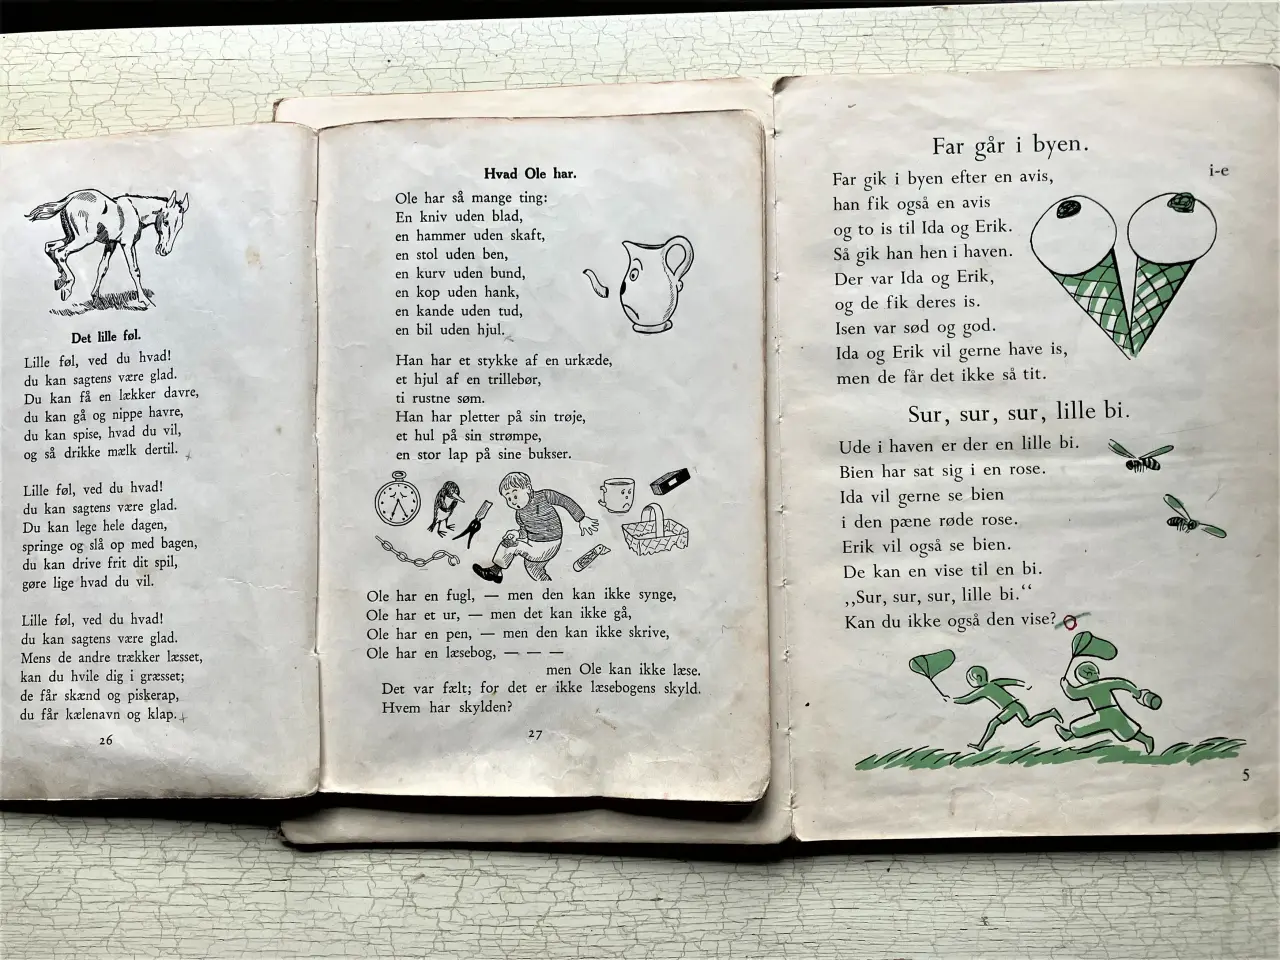 Det lille føl.
Lille føl, ved du hvad!
du kan sagtens være glad.
Du kan få en lækker davre,
du kan gå og nippe havre,
du kan spise, hvad du vil,
og så drikke mælk dertil.
Lille føl, ved du hvad!
du kan sagtens være glad.
Du kan lege hele dagen,
springe og slå op med bagen,
du kan drive frit dit spil,
gøre lige hvad du vil.
Lille føl, ved du hvad!
du kan sagtens være glad.
Mens de andre trækker læsset,
kan du hvile dig i græsset;
de får skænd og piskerap,
du får kælenavn og klap.
26
Hvad Ole har.
Ole har så mange ting:
En kniv uden blad,
en hammer uden skaft,
en stol uden ben,
en kurv uden bund,
en kop uden hank,
en kande uden tud,
en bil uden hjul.
Han har et stykke af en urkæde,
et hjul af en trillebør,
ti rustne søm.
Han har pletter på sin trøje,
et hul på sin strømpe,
en stor lap på sine bukser.
Ole har en fugl, — men den kan ikke synge,
Ole har et ur, — men det kan ikke gå,
Ole har en pen, — men den kan ikke skrive,
Ole har en læsebog, — — —
men Ole kan ikke læse.
Det var fælt; for det er ikke læsebogens skyld.
Hvem har skylden?
27
Far går i byen.
i-e
Far gik i byen efter en avis,
han fik også en avis
og to is til Ida og Erik.
Så gik han hen i haven.
Der var Ida og Erik,
og de fik deres is.
Isen var sød og god.
Ida og Erik vil gerne have is,
men de får det ikke så tit.
Sur, sur, sur, lille bi.
Ude i haven er der en lille bi.
Bien har sat sig i en rose.
Ida vil gerne se bien
i den pæne røde rose.
Erik vil også se bien.
De kan en vise til en bi.
,,Sur, sur, sur, lille bi.‘‘
Kan du ikke også den vise?
5